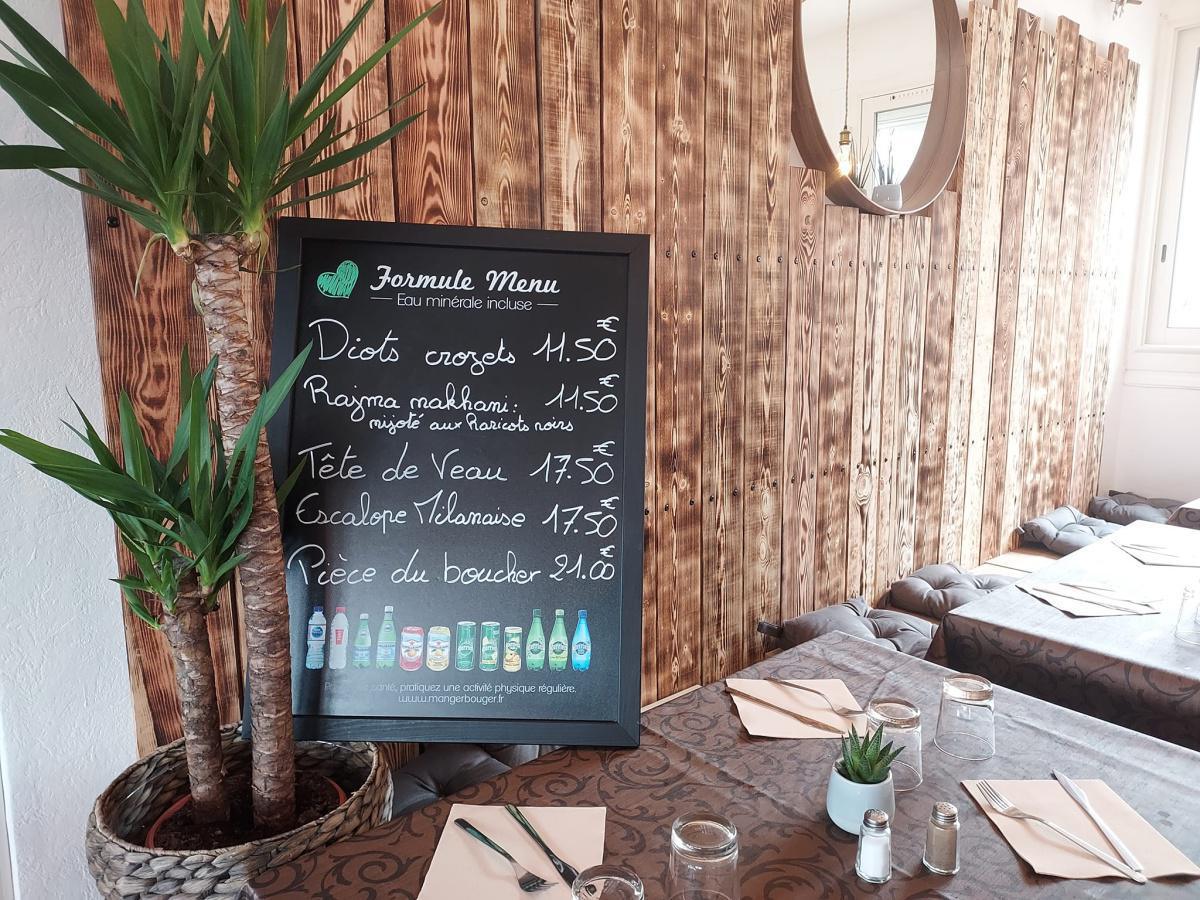 Formule Menu
Eau minérale incluse
Diots crozets 11.50€
Rajma makhani: 11.50€
mijoté aux haricots noirs
Tête de Veau 17.50€
Escalope Milanaise 17.50€
Pièce du boucher 21.00€
santé, pratiquez une activité physique régulière.
www.mangerbouger.fr